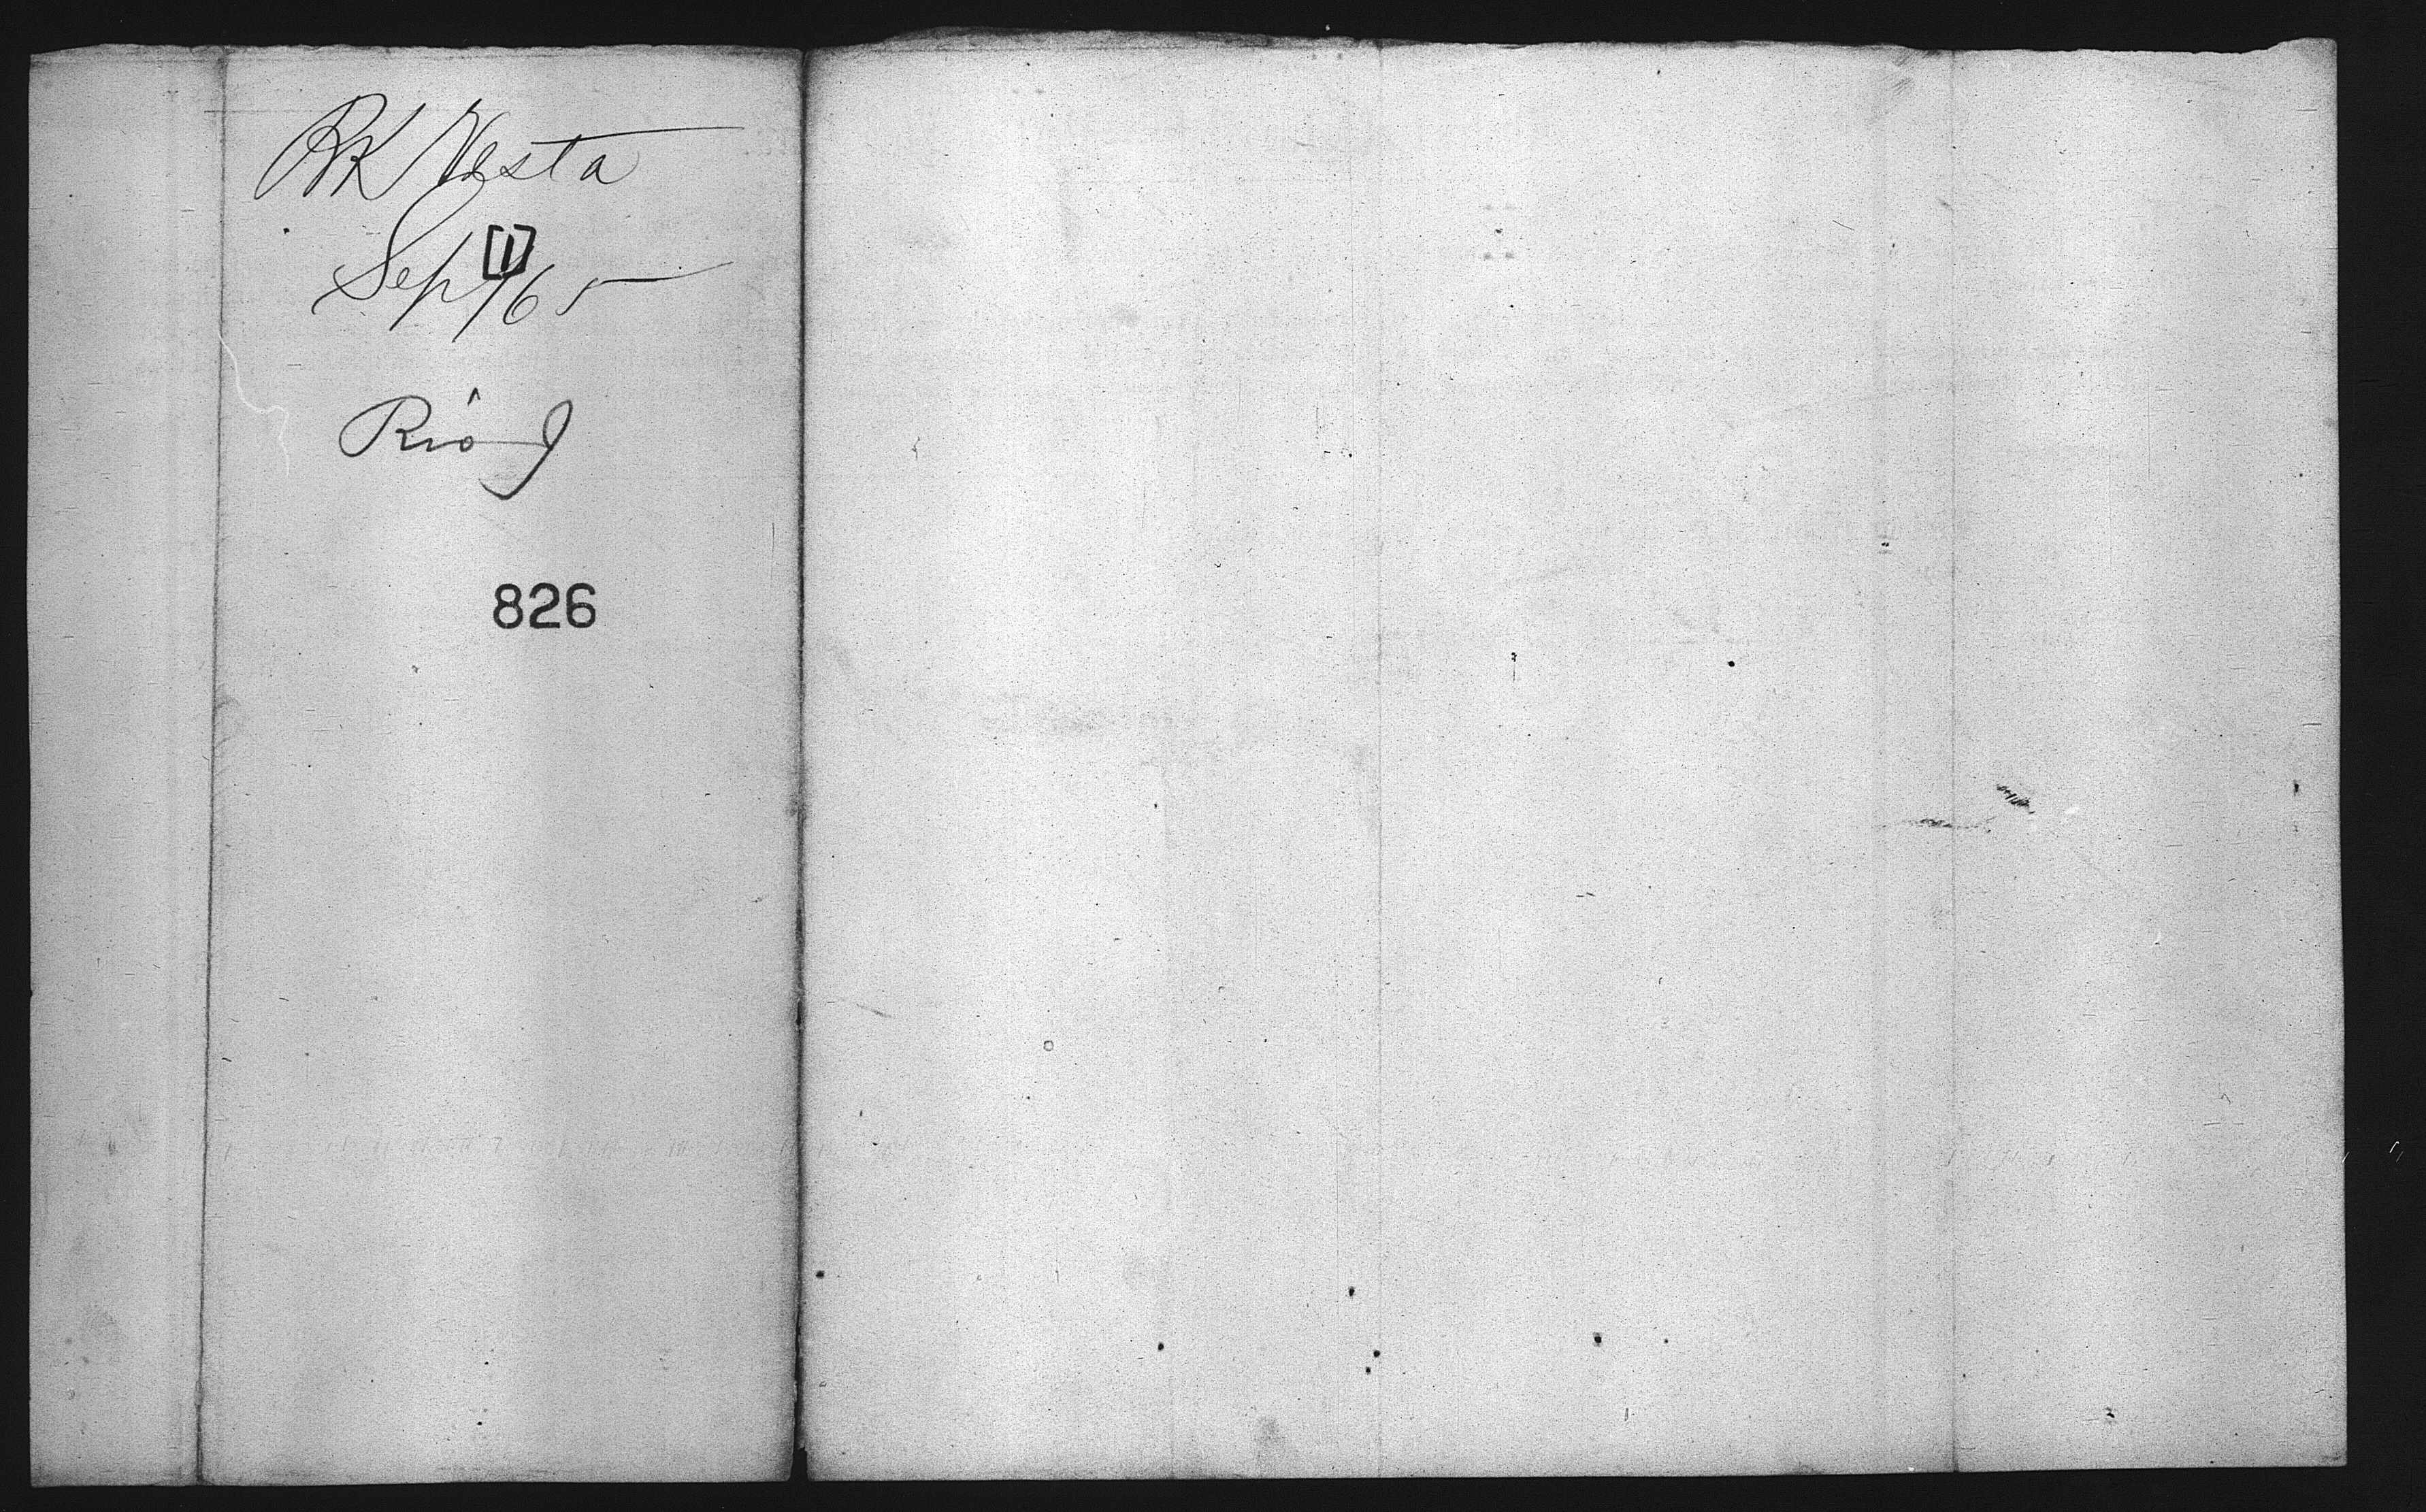 BK Vesta
Sep /65
[1]
Rio J
826